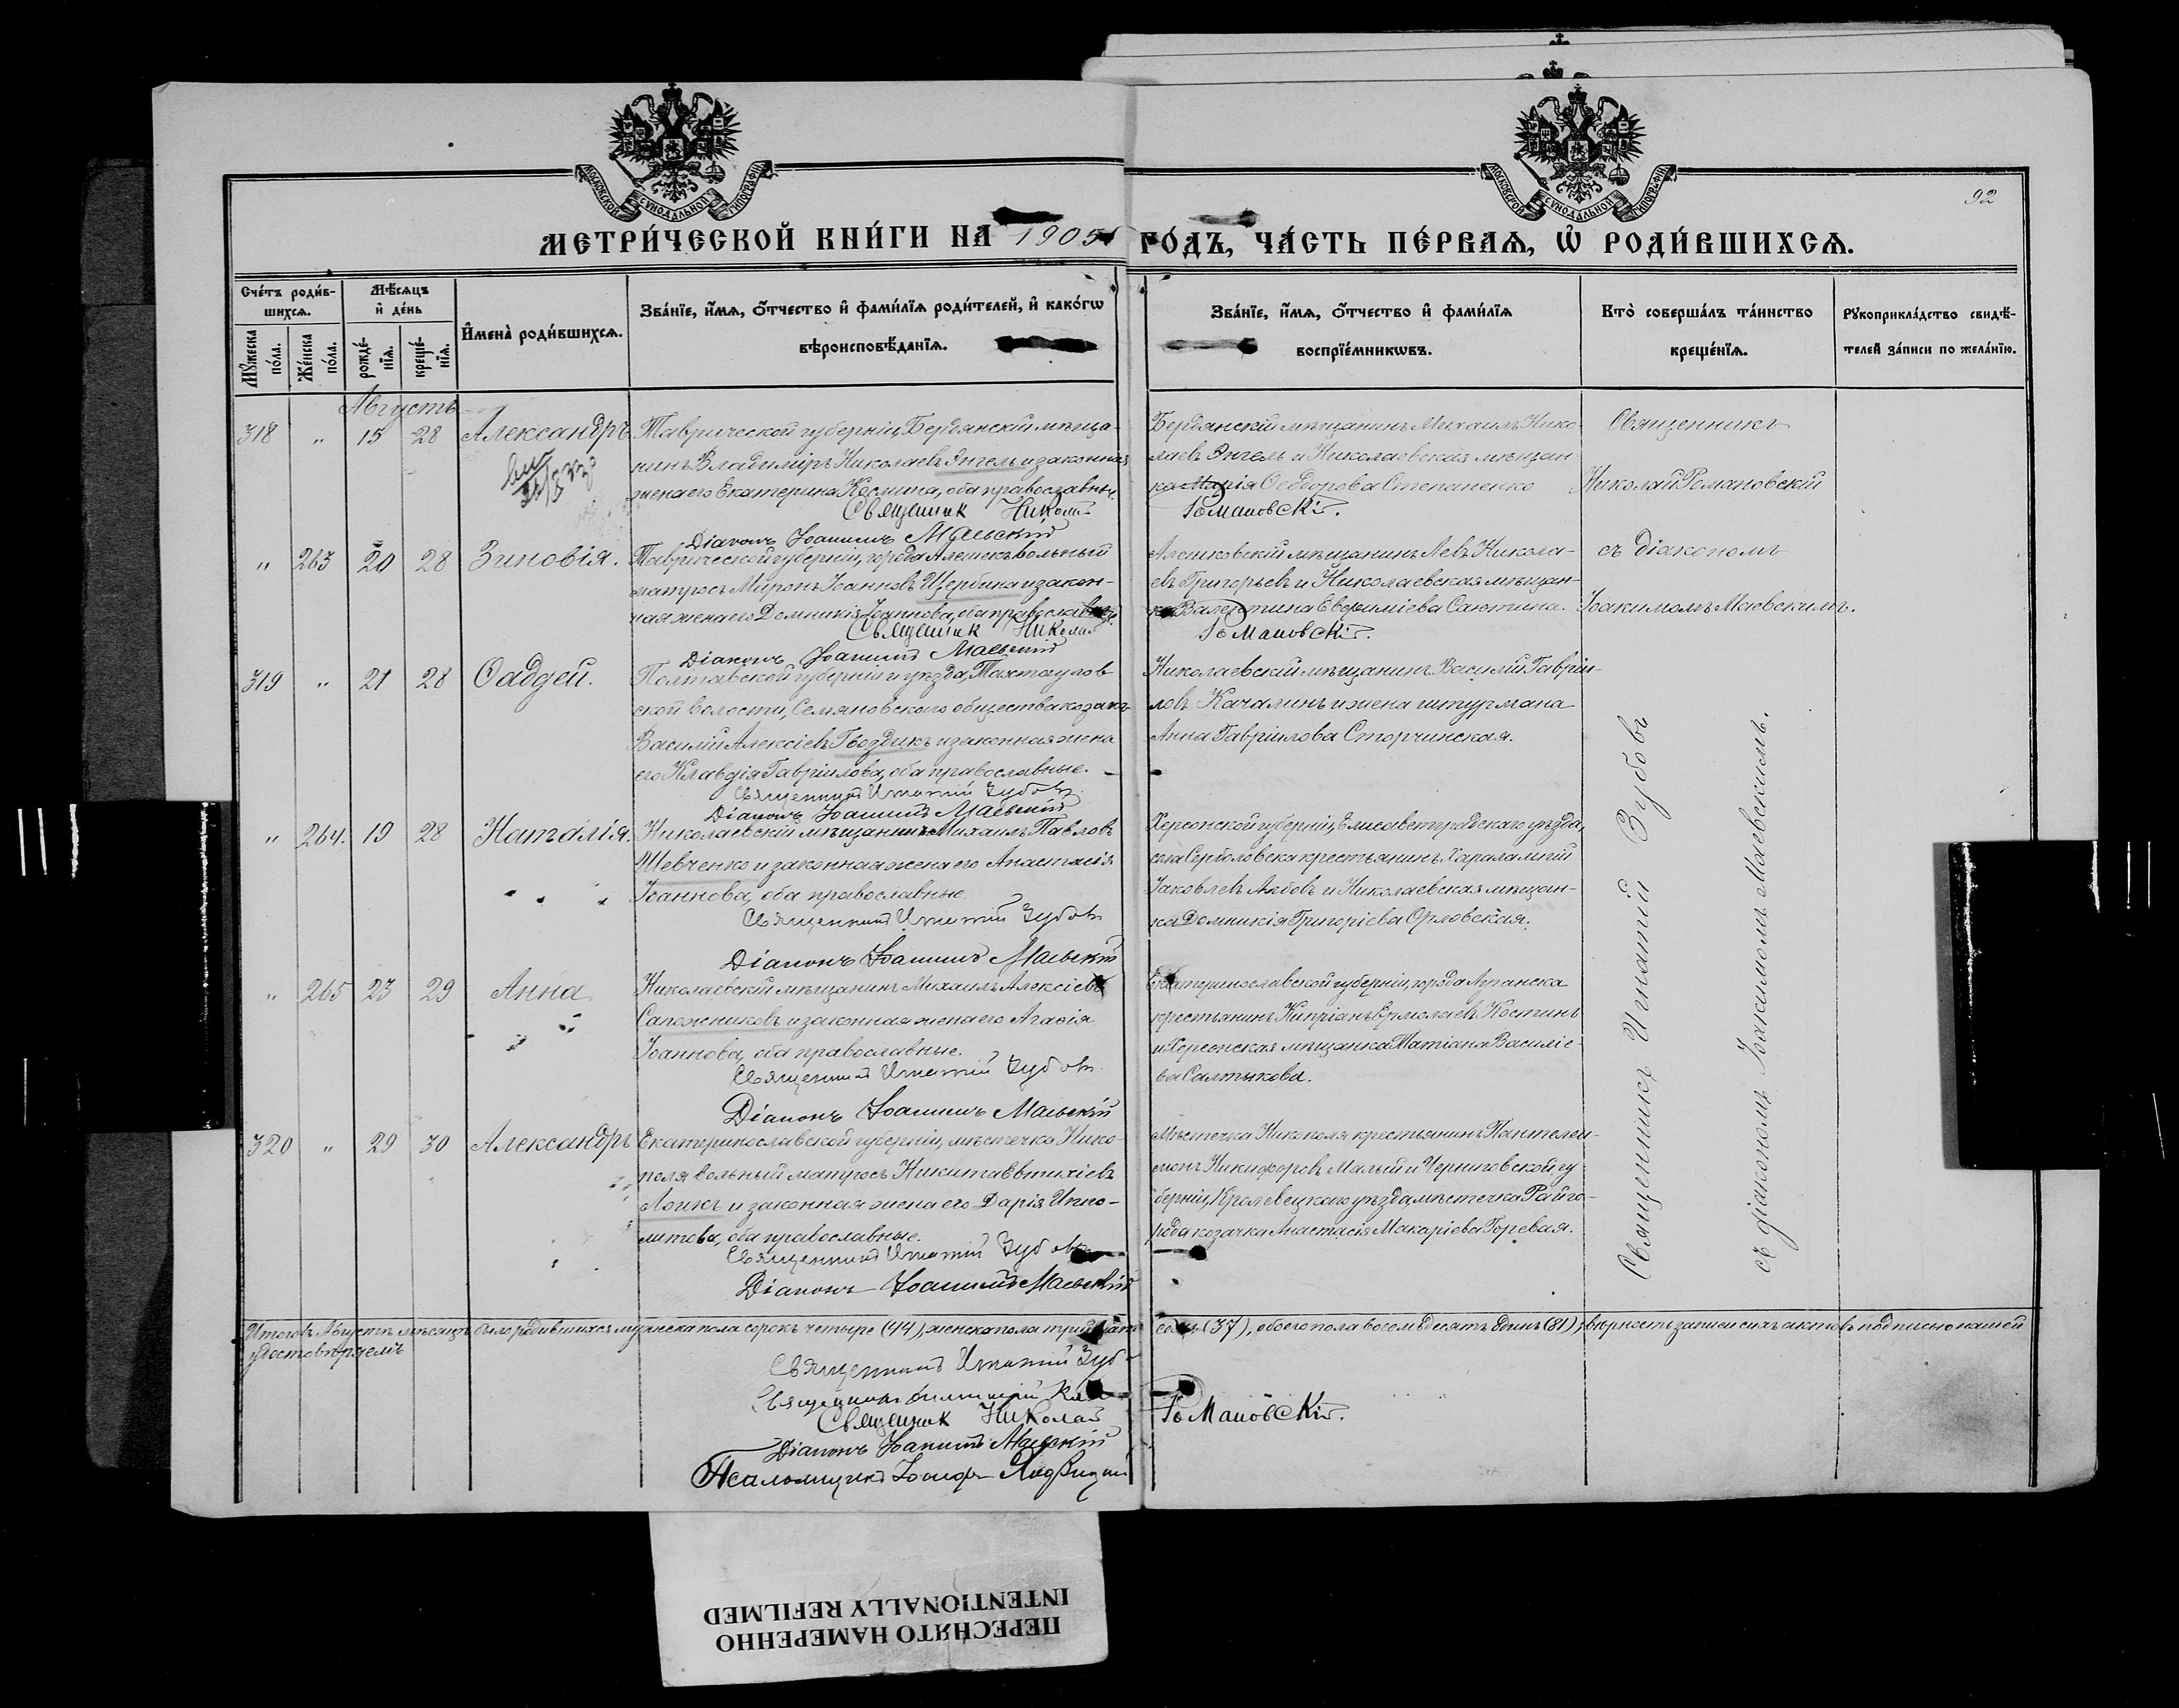 МОСКОВСКОЙ СУНОДАЛЬНОЙ ТИПОГРАФІИ
МОСКОВСКОЙ СУНОДАЛЬНОЙ ТИПОГРАФІИ
92
МЕТРИ́ЧЕСКОЙ КНИ́ГИ НА 1905 ГО́ДЪ, ЧА́СТЬ ПЕ́РВАѦ, Ѡ҆ РОДИ́ВШИХСѦ.
Сче́тъ роди́в-
шихсѧ.
Мѣ́сѧцъ
и҆ де́нь
Мꙋ́жеска
по́ла.
Же́нска
по́ла.
рожде́-
нїѧ.
креще́-
нїѧ.
И҆мена̀ роди́вшихсѧ.
Зва́нїе, и҆́мѧ, ѻ҆́тчество и҆ фами́лїѧ роди́телей, и҆ како́гѡ
вѣроисповѣ́данїѧ.
Зва́нїе, и҆́мѧ, ѻ҆́тчество и҆ фами́лїѧ
воспрїе́мникѡвъ.
Кто̀ соверша́лъ та́инство
креще́нїѧ.
Рꙋкоприкла́дство свидѣ́-
телей за́писи по жела́нїю.
Августъ
318 " 15 28 Александръ
Таврической губерніи, Бердянскій мѣща-
нинъ Владиміръ Николаевъ Энгель и законная
жена его Екатерина Космина, оба православные.
Священник Николай Романовскій.
Діаконъ Іоакимъ Маевскій
Бердянскій мѣщанинъ Михаилъ Нико-
лаевъ Энгель и Николаевская мѣщан
ка Марія Ѳеодорова Степаненко
Священникъ
Николай Романовскій
съ діакономъ
Іоакимомъ Маевскимъ.
" 263 20 28 Зиновія.
Таврической губерніи, города Алешекъ вольный
матросъ Миронъ Іоанновъ Щербина и закон-
ная жена его Домникія Іоаннова, оба православные.
Священник Николай Романовскій.
Діаконъ Іоакимъ Маевскій
Алешковскій мѣщанинъ Левъ Никола-
евъ Григорьевъ и Николаевская мѣщан-
ка Валентина Евѳиміева Саютина.
319 " 21 28 Ѳаддей.
Полтавской губерніи и уѣзда, Тахтаулов
ской волости, Семяновского общества козакъ
Василій Алексіевъ Гвоздикъ и законная жена
его Клавдія Гавріилова, оба православные.
Священникъ Игнатій Зубовъ
Діаконъ Іоакимъ Маевскій
Николаевскій мѣщанинъ Василій Гавріи-
ловъ Качалинъ и жена штурмана
Анна Гавріилова Сторчинская.
" 264. 19 28 Наталія.
Николаевскій мѣщанинъ Михаилъ Павловъ
Шевченко и законная жена его Анастасія
Іоаннова, оба православные.
Священникъ Игнатій Зубовъ
Діаконъ Іоакимъ Маевскій
Херсонской губерніи, Елисаветградскаго уѣзда,
крестьянинъ Харалампій
Іаковлевъ и Николаевская мѣщан-
ка Домникія Григоріева Орловская.
Священникъ Игнатій Зубовъ
съ діакономъ Іоакимомъ Маевскимъ.
" 265 23 29 Анна
Николаевскій мѣщанинъ Михаилъ Алексіевъ
Сапожниковъ и законная жена его Агафія
Іоаннова, оба православные.
Священникъ Игнатій Зубовъ
Діаконъ Іоакимъ Маевскій
Екатеринославской губерніи, города Луганска
крестьянинъ Кипріанъ Ермолаевъ Костинъ
и Херсонская мѣщанка Татіана Василіе-
ва Салтыкова.
320 " 29 30 Александръ
Екатеринославской губерніи, мѣстечка Нико-
поля вольный матросъ Никита Евтихіевъ
Лоикъ и законная жена его Дарія Иппо-
литова, оба православные.
Священникъ Игнатій Зубовъ
Діаконъ Іоакимъ Маевскій
Мѣстечка Никополя крестьянинъ Пантелеи-
монъ Никифоровъ Малый и Черниговской гу
берніи, Кролевецкаго уѣзда, мѣстечка Райго-
рода козачка Анастасія Макаріева Горевая.
Итого въ Августѣ мѣсяцѣ было родившихся мужеска пола сорокъ четыре (44), женска пола тридцать семь (37), обоего пола восемьдесятъ одинъ (81), вѣрность записи сихъ актовъ подписью нашей
удостовѣряемъ
Священникъ Игнатій Зубо
Священникъ
Священник Николай Романовскій.
Діаконъ Іоакимъ Маевскій
Псаломщикъ Іосифъ
ПЕРЕСНЯТО НАМЕРЕННО
INTENTIONALLY REFILMED